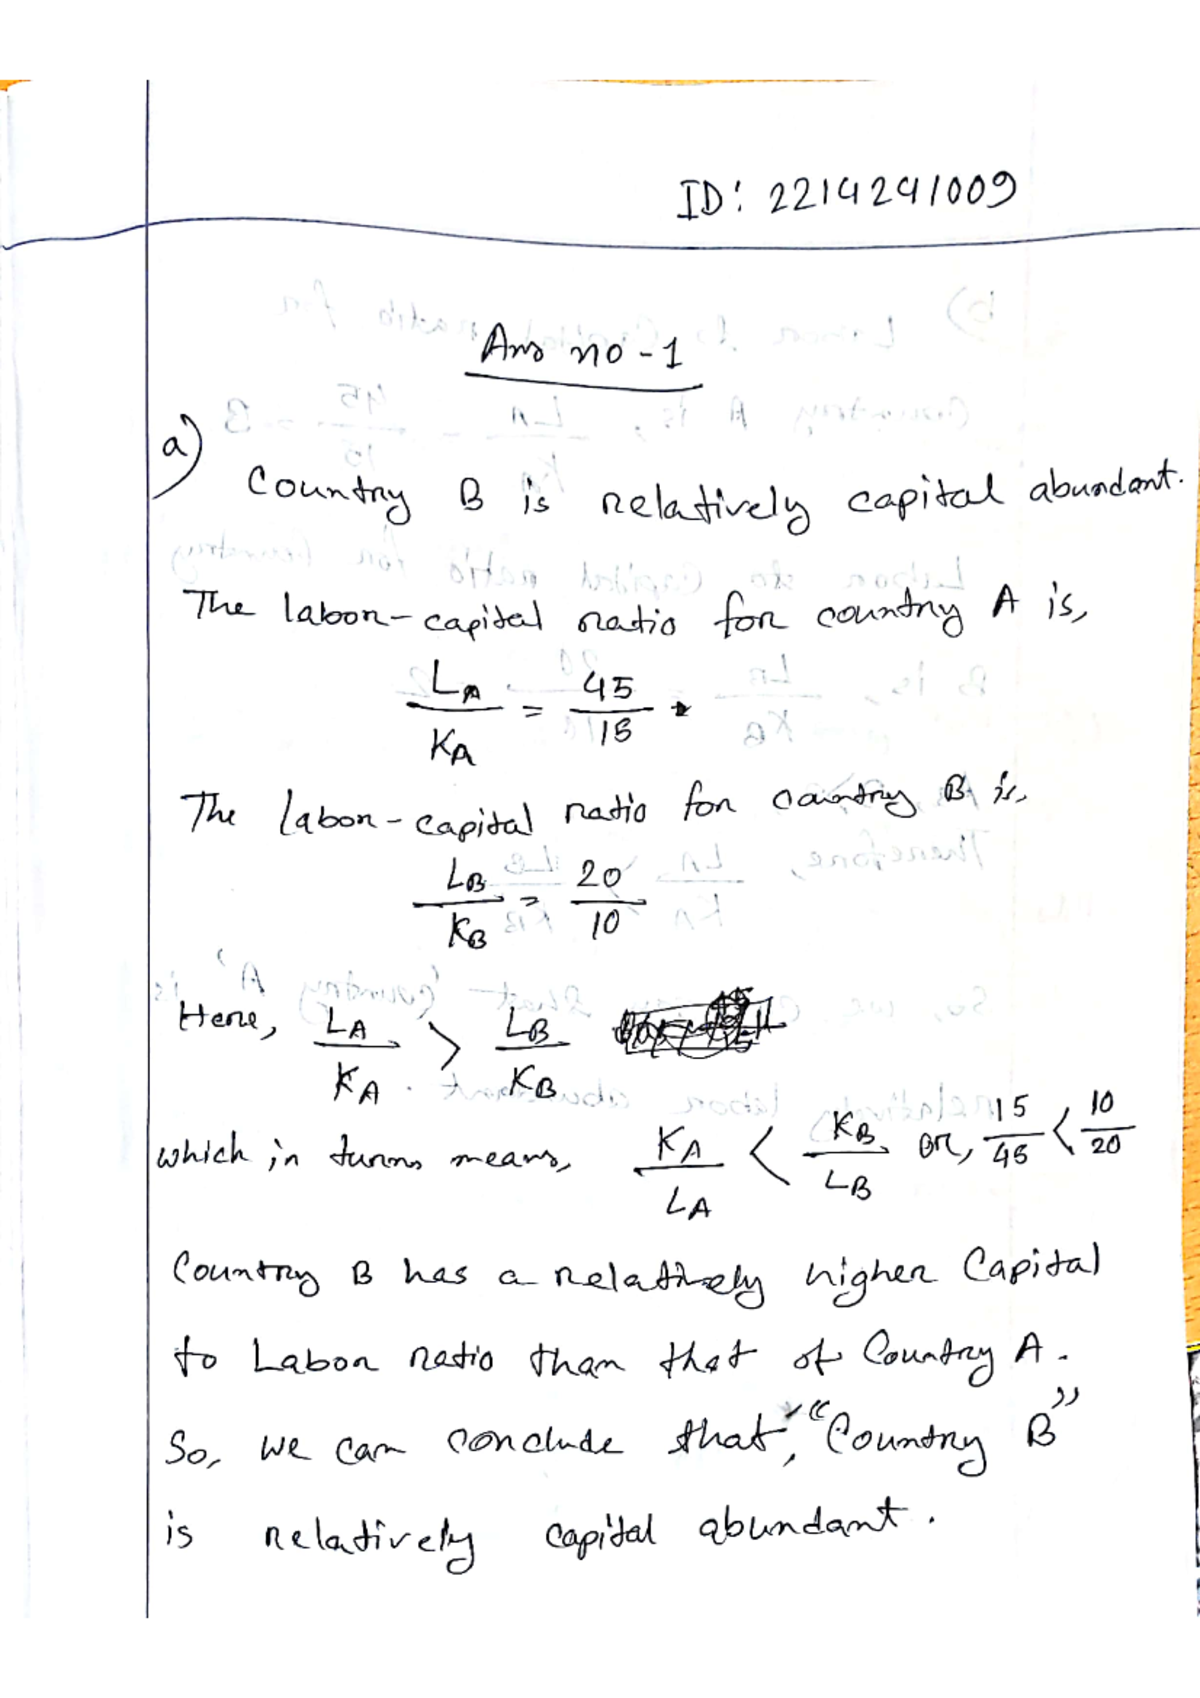 ID: 2214241009
Ans no-1
a)
Country B is relatively capital abundant.
The labor-capital ratio for country A is,
L_A / K_A = 45 / 15
The labor-capital ratio for country B is,
L_B / K_B = 20 / 10
Here, L_A / K_A > L_B / K_B
which in turns means, K_A / L_A < K_B / L_B or, 15 / 45 < 10 / 20
Country B has a relatively higher Capital
to Labor ratio than that of Country A.
So, we can conclude that, "Country B"
is relatively capital abundant.